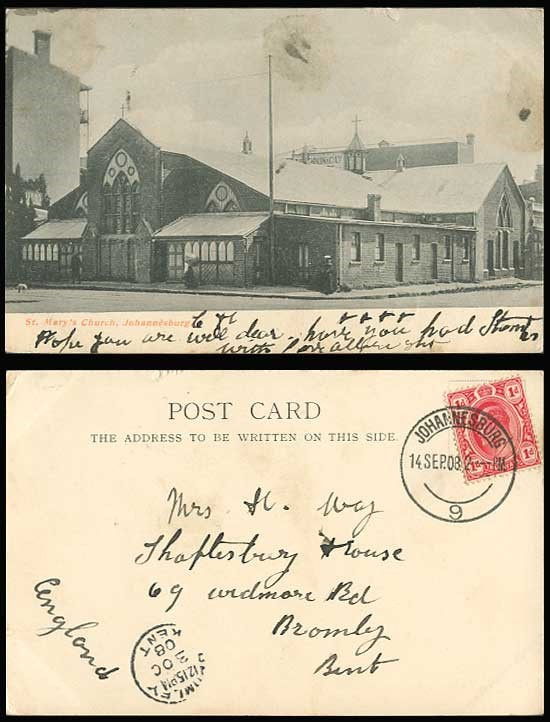 St. Mary's Church, Johannesburg
Hope you are well dear. have you had
with love all
POST CARD
THE ADDRESS TO BE WRITTEN ON THIS SIDE.
1d 1d
JOHANNESBURG
14 SEP. 08 PM
9
Mrs H. Way
Shaftesbury House
69 widmore Rd
Bromley
Kent
England
KENT
08
OC
12.15PM